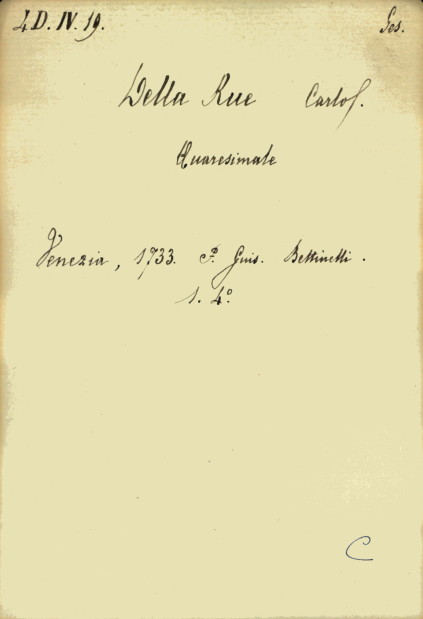 4.D.IV.19. Ges.
Della Rue Carlo S.
Quaresimale
Venezia, 1733. P. Guis. Bettinelli.
1. 4°
C